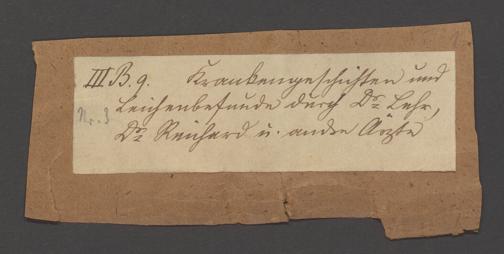 III B. 9. Krankengeschichten und
Nr. 3 Leichenbefunde durch Dr. Lehr,
Dr. Reichard u. andre Ärzte